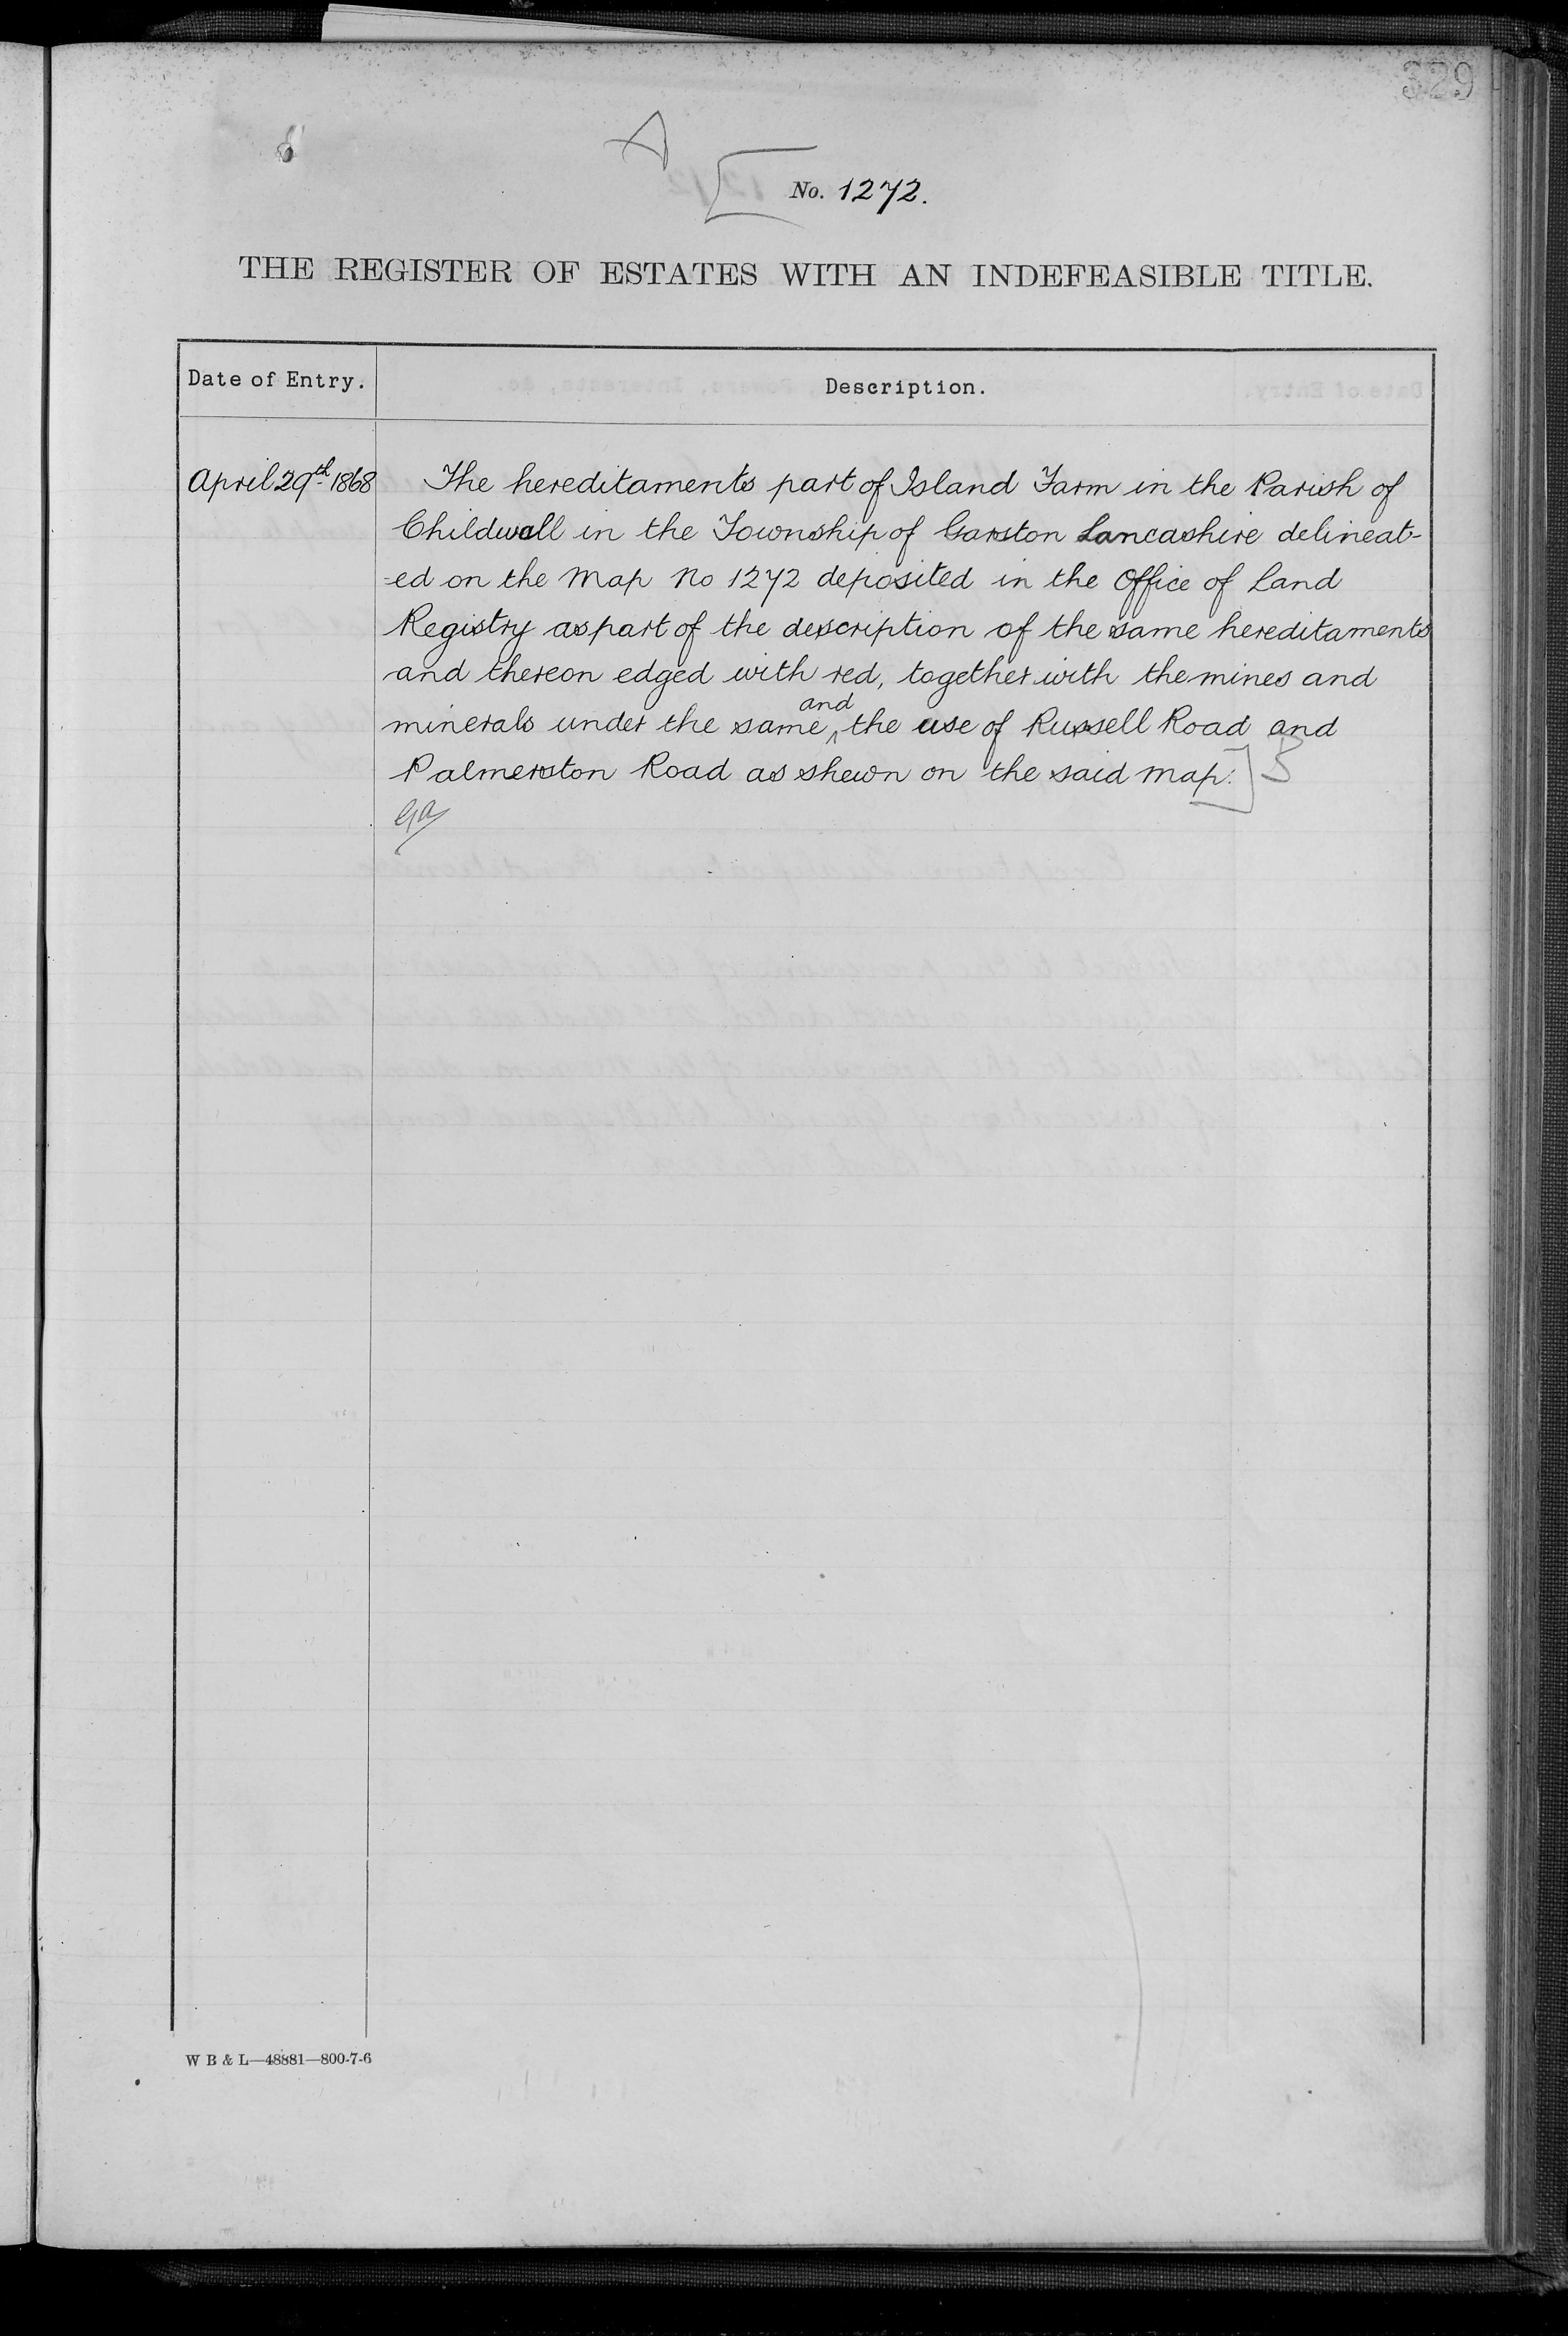 329
A
No. 1272.
THE REGISTER OF ESTATES WITH AN INDEFEASIBLE TITLE.
Date of Entry.
Description.
April 29th 1868
The hereditaments part of Island Farm in the Parish of
Childwall in the Township of Garston Lancashire delineat-
-ed on the Map No 1272 deposited in the Office of Land
Registry as part of the description of the same hereditaments
and thereon edged with red, together with the mines and
minerals under the same and the use of Russell Road and
Palmerston Road as shewn on the said map.] B
W B & L—48881—800-7-6